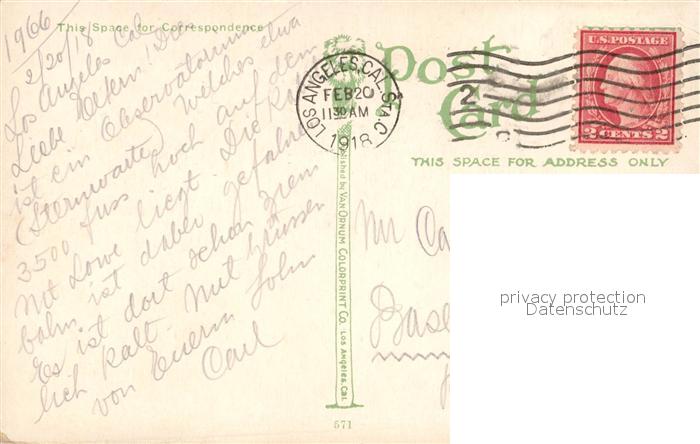 1966
This Space for Correspondence
2/20/18
Los Angeles Cal
Liebe Eltern! Dies
ist ein Observatorium
(Sternwarte) welches etwa
3500 fuss hoch auf dem
Mt Lowe liegt Die
bahn ist dabei gefahren
Es ist dort schon ziem
lich kalt. Mit grüssen
von Euerm Sohn
Carl
Published by Van Ornum Colorprint Co. Los Angeles, Cal.
571
Post
Card
LOS ANGELES, CAL. STA. C
FEB 20
11 30 AM
1918
2
U.S. POSTAGE
2 CENTS 2
THIS SPACE FOR ADDRESS ONLY
Mr
privacy protection
Datenschutz